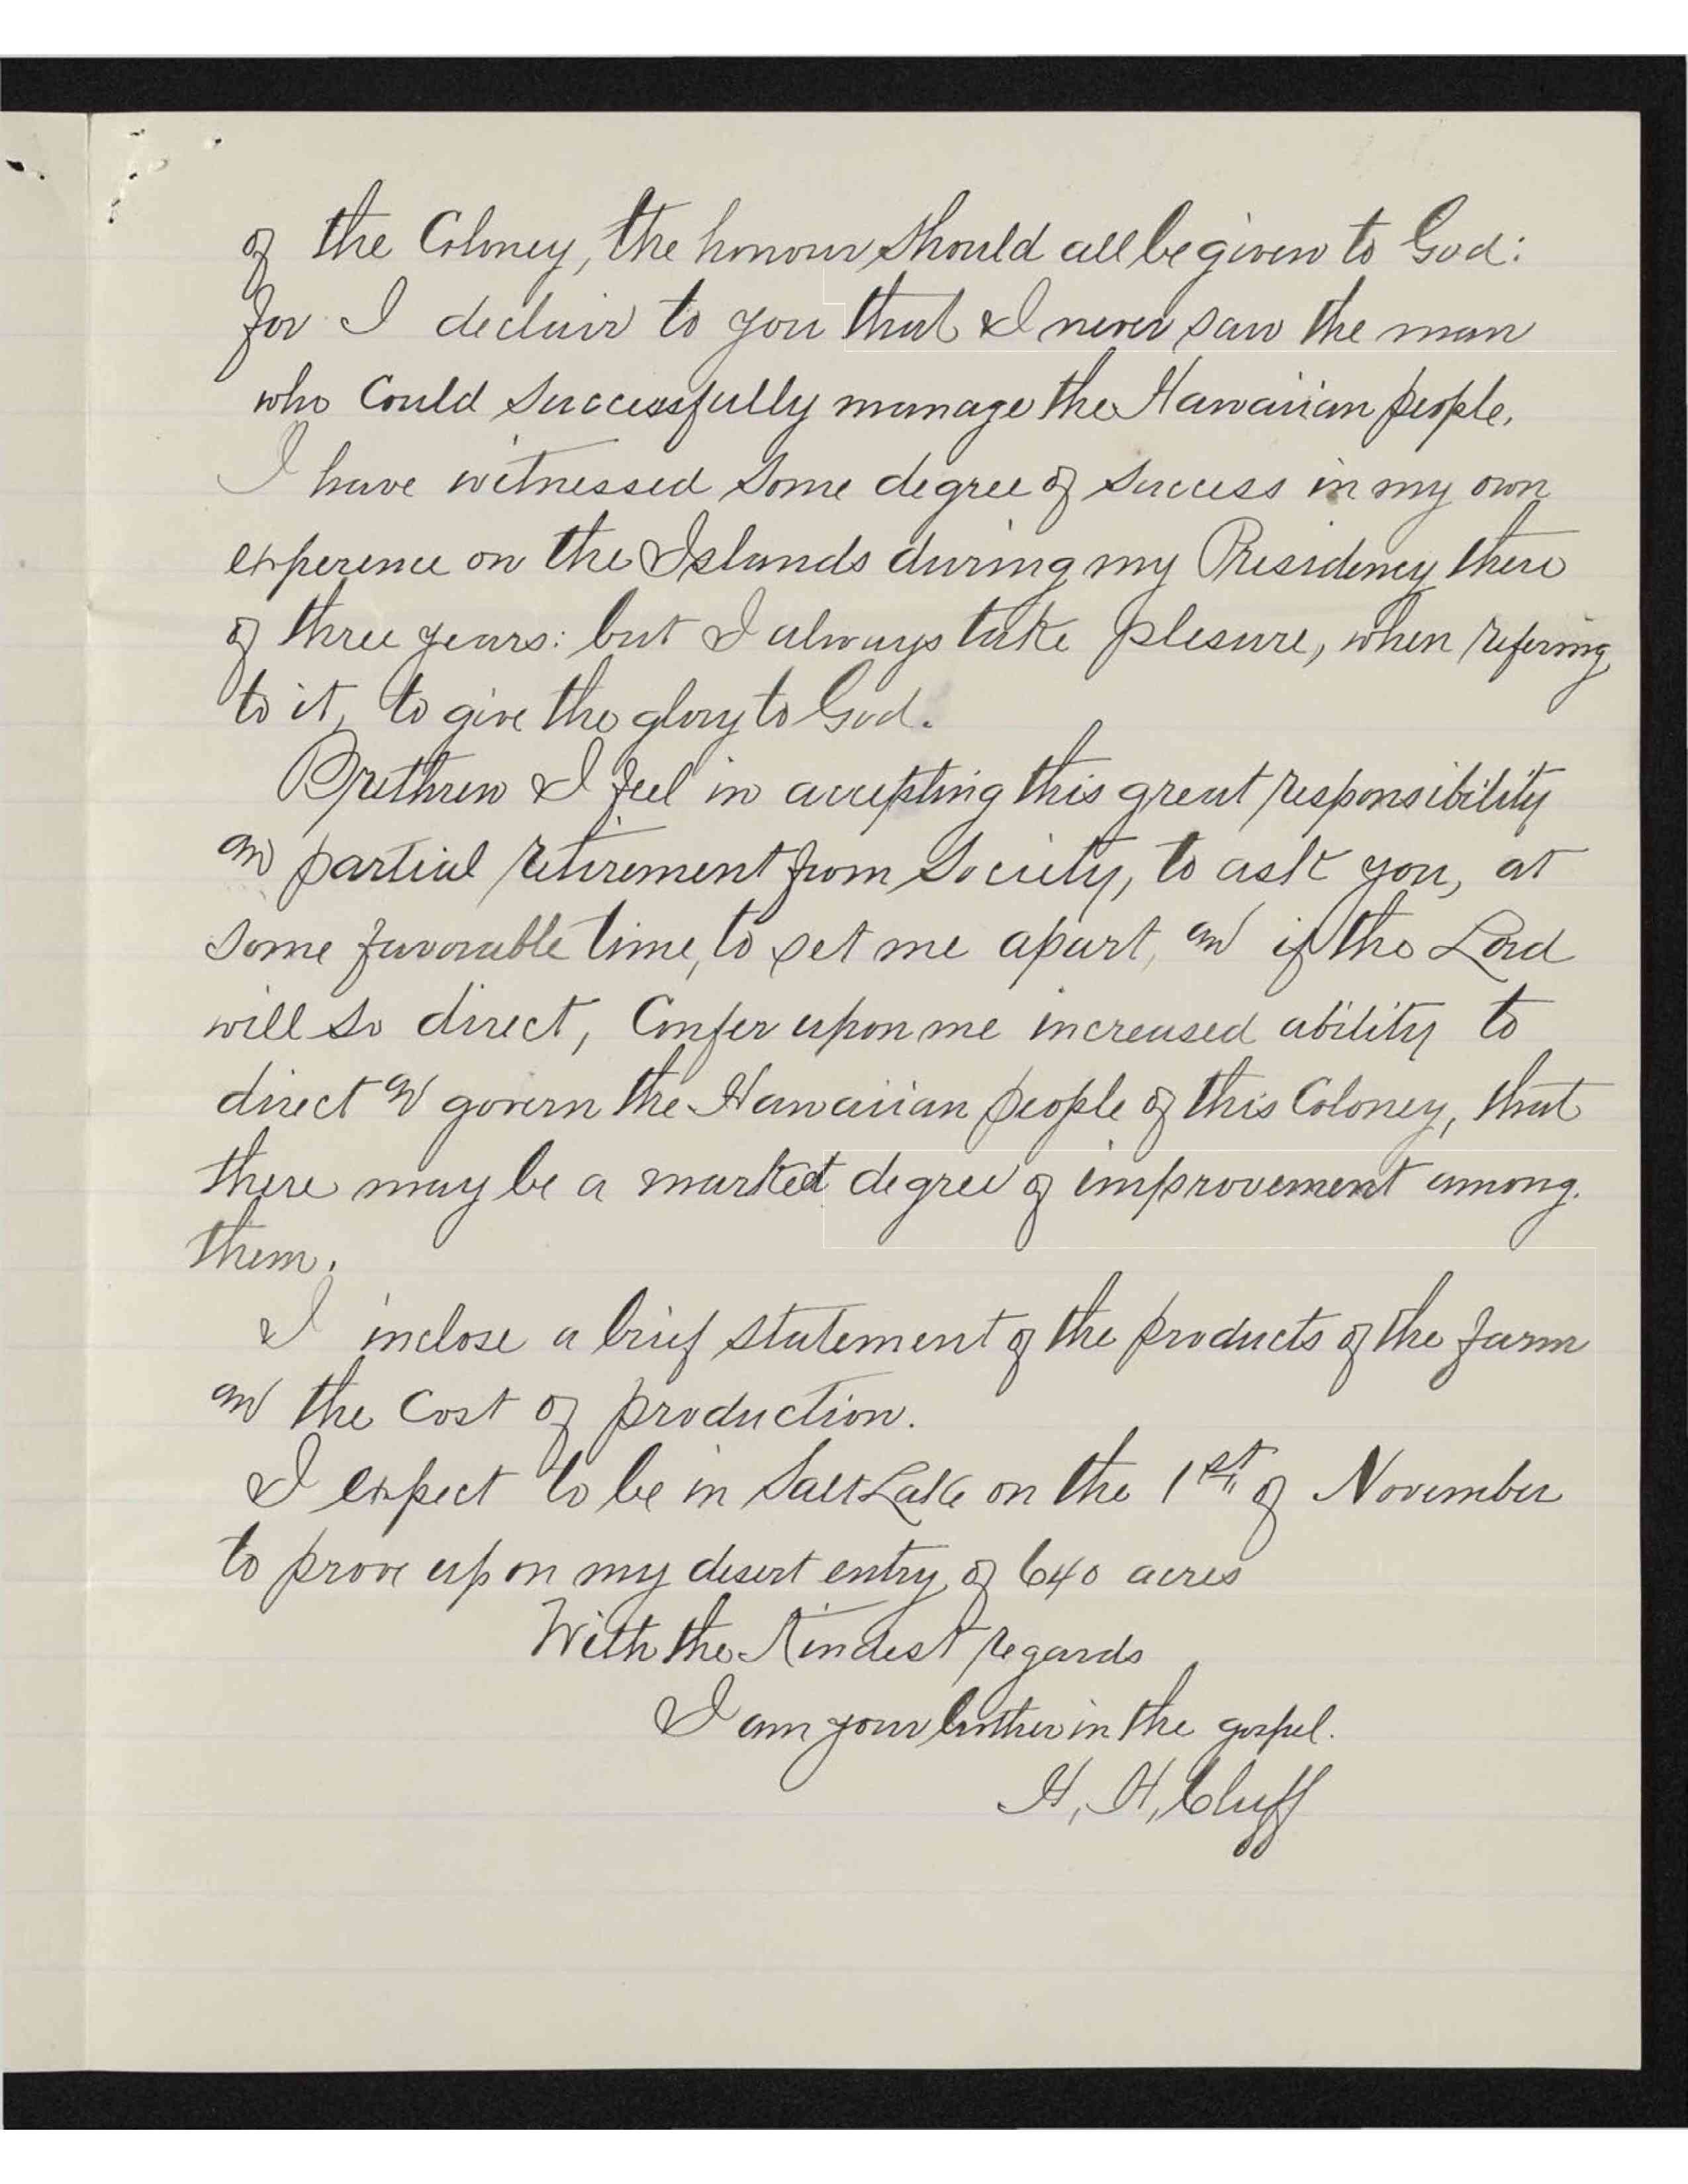 of the Coloney, the honour should all be given to God:
for I declair to you that I never saw the man
who Could successfully manage the Hawaiian people.
I have witnessed some degree of success in my own
experence on the Islands during my Presidency there
of three years: but I always take plesure, when refering
to it, to give the glory to God.
Brethren I feel in accepting this great responsibility
and partial retirement from Society, to ask you, at
some favorable time, to set me apart, and if the Lord
will so direct, Confer upon me increased ability to
direct and govern the Hawaiian people of this Coloney, that
there may be a marked degree of improvement among
them.
I inclose a brief statement of the products of the farm
and the Cost of production.
I expect to be in Salt Lake on the 1st of November
to prove up on my desert entry of 640 acres
With the Kindest regards
I am your brother in the gospel.
H, H, Cluff